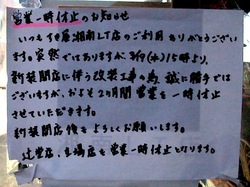 営業一時休止のお知らせ
いつも すき屋湘南LT店のご利用 ありがとうござい
ます。突然ではありますが、3/19(水)15時より、
新装開店に伴う改装工事の為 誠に勝手では
ございますが、およそ2ヵ月間 営業を一時休止
させていただきます。
新装開店後もよろしくお願いします。
辻堂店、営業一時休止となります。